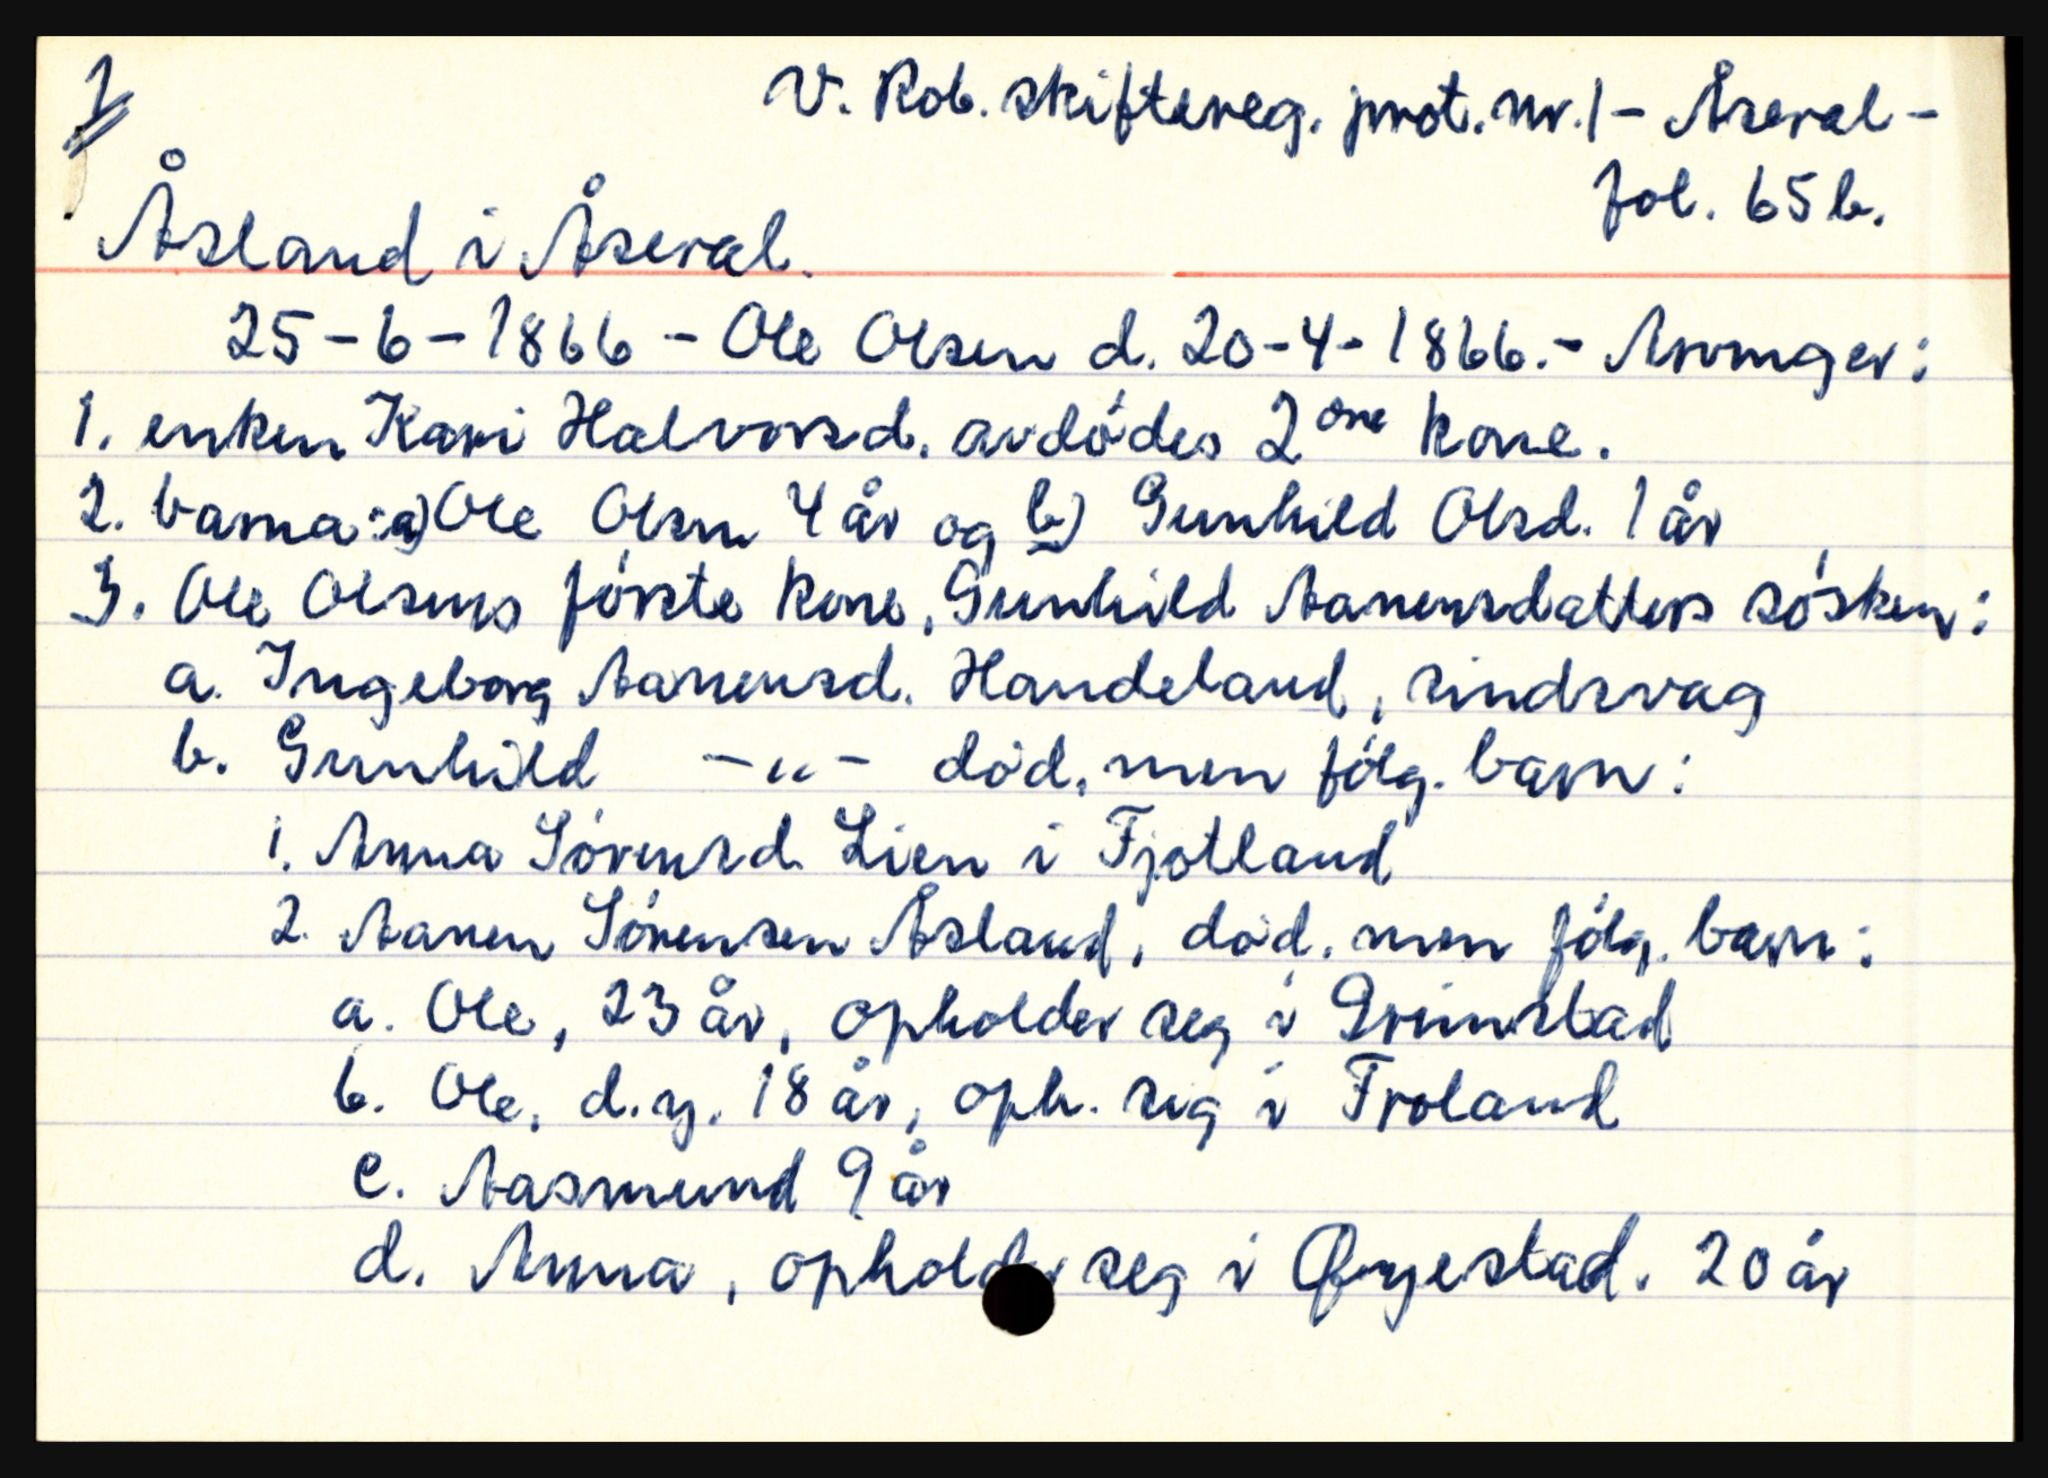 1
V. Rob. skiftereg. prot. nr. 1 - Åseral -
fol. 65b.
Åsland i Åseral.
25-6-1866 - Ole Olsen d. 20-4-1866.- Arvinger:
1. enken Kari Halvorsd. avdødes 2dre kone.
2. barna: a) Ole Olsen 4 år og b) Gunhild Olsd. 1 år
3. Ole Olsens første kone, Gunhild Aanensdatters søsken:
a. Ingeborg Aanensd. Handeland, sindsvag
b. Gunhild -"- død, men følg. barn:
1. Anna Sørensd. Lien i Fjotland
2. Aanen Sørensen Åsland, død, men følg. barn:
a. Ole, 23 år, opholder seg i Grimstad
b. Ole, d.y. 18 år, oph. sig i Froland
c. Aasmund 9 år
d. Anna, opholder seg i Øyestad. 20 år